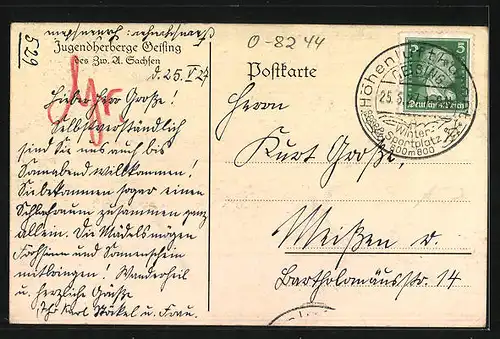 529
Jugendherberge Geising
des Zw. A. Sachsen
d. 25. V 27
Lieber Herr Große!
Selbstverständlich
sind Sie uns auch bis
Sonnabend willkommen!
Sie bekommen sogar einen
Schlafraum zusammen ganz
allein. Die Mädels mögen
Frohsinn und Sonnenschein
mitbringen! Wanderheil
u. herzliche Grüße
Ihr Karl Stöckel u. Frau.
0-8244
Postkarte
5
Deutsches Reich
GEISING
25.5.27
Winter-
Sportplatz
800m800
Herrn
Kurt Große,
Meißen
Bartholomäusstr. 14